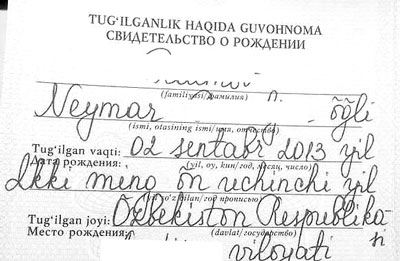 TUG'ILGANLIK HAQIDA GUVOHNOMA
СВИДЕТЕЛЬСТВО О РОЖДЕНИИ
(familiyasi/фамилия)
Neymar õğli
(ismi, otasining ismi/имя, отчество)
Tug'ilgan vaqti: 02 sentabr 2013 yil
Дата рождения: (yil, oy, kun/год, месяц, число)
Ikki ming õn uchinchi yil
(yil so'z bilan/год прописью)
Tug'ilgan joyi: Õzbekiston Respublika-
Место рождения: (davlat/государство) si
viloyati